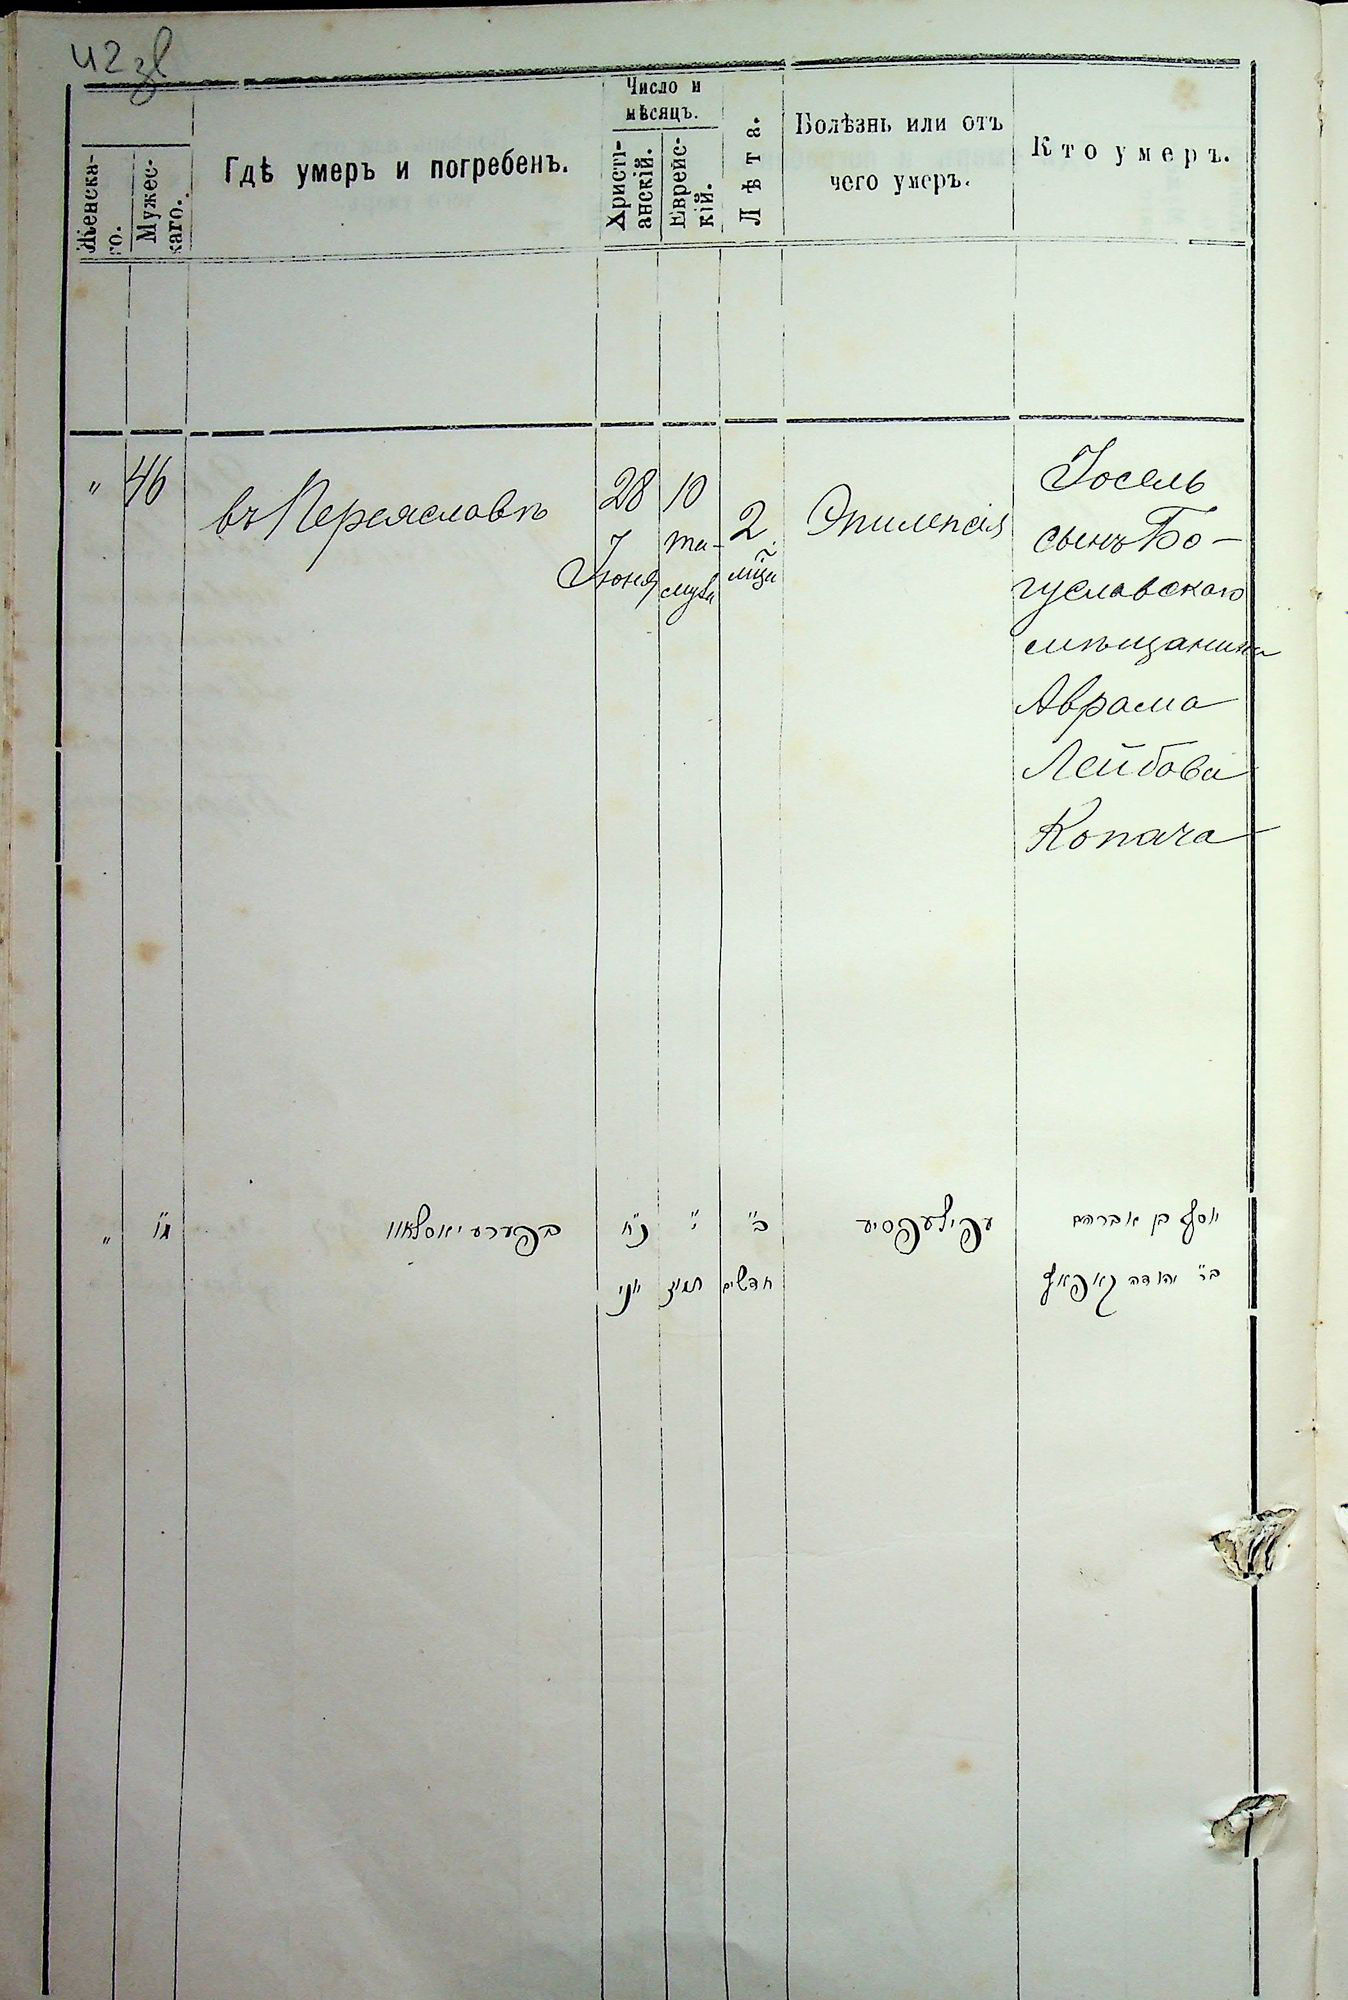 42 зв
Женска-
го.
Мужес-
каго.
Гдѣ умеръ и погребенъ.
Число и
мѣсяцъ.
Христі-
анскій.
Еврейс-
кій.
Лѣта.
Болѣзнь или отъ
чего умеръ.
Кто умеръ.
" 46
въ Переяславѣ
28
Іюня
10
та-
муза
2
мца
Эпилепсія
Іосель
сынъ Бо-
гуславскаго
мѣщанина
Аврама
Лейбова
Копача
"
מ"ו
בפערעיאסלאוו
כ"ח
יוני
י"
תמוז
ב"
חדשים
עפילעפסיע
יוסף בן אברהם
בר' יהודה קאפאץ